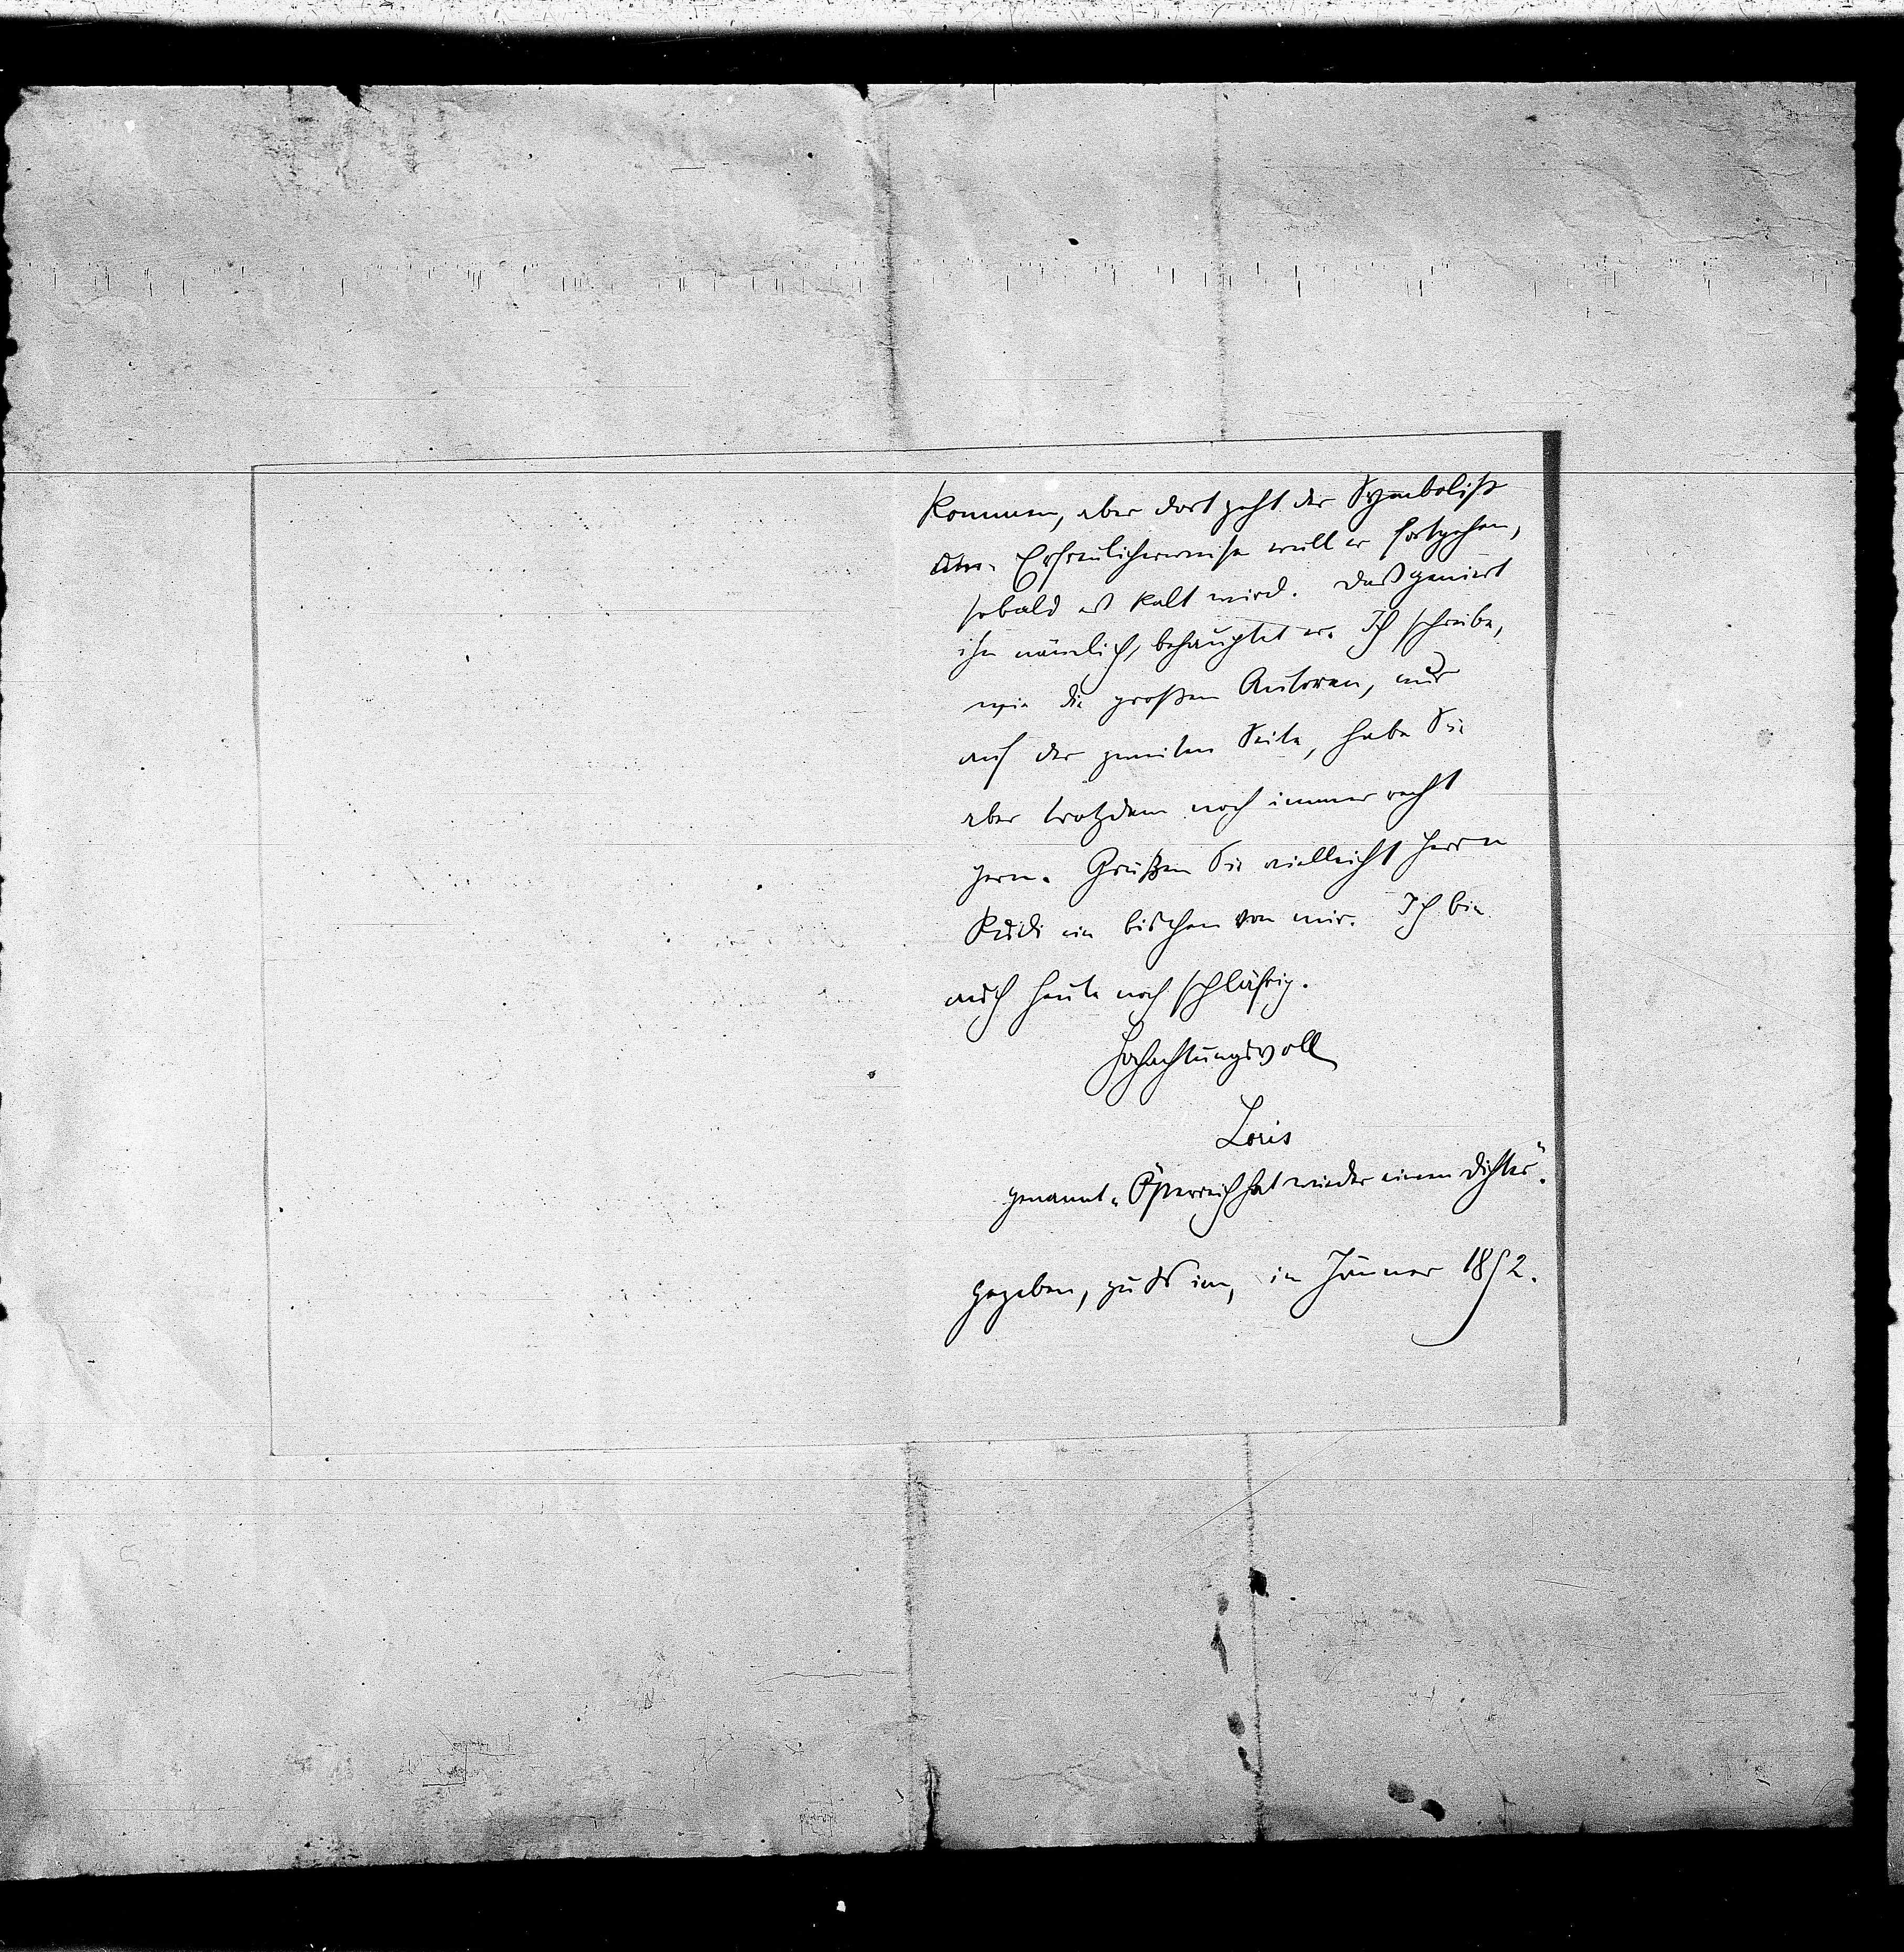 kommen, aber dort geht der Symbolist
um. Erfreulicherweise will er fortgehen,
sobald es kalt wird. Das geniert
ihn nämlich, behauptet er. Ich schreibe,
wie die großen Autoren, nur
auf der zweiten Seite, habe Sie
aber trotzdem noch immer recht
gern. Grüßen Sie vielleicht Herrn
Rudi ein bischen von mir. Ich bin
auch heute noch schläfrig.
Hochachtungsvoll
Loris
genannt „Österreich hat wieder einen Dichter".
gegeben, zu Wien, im Jänner 1892.